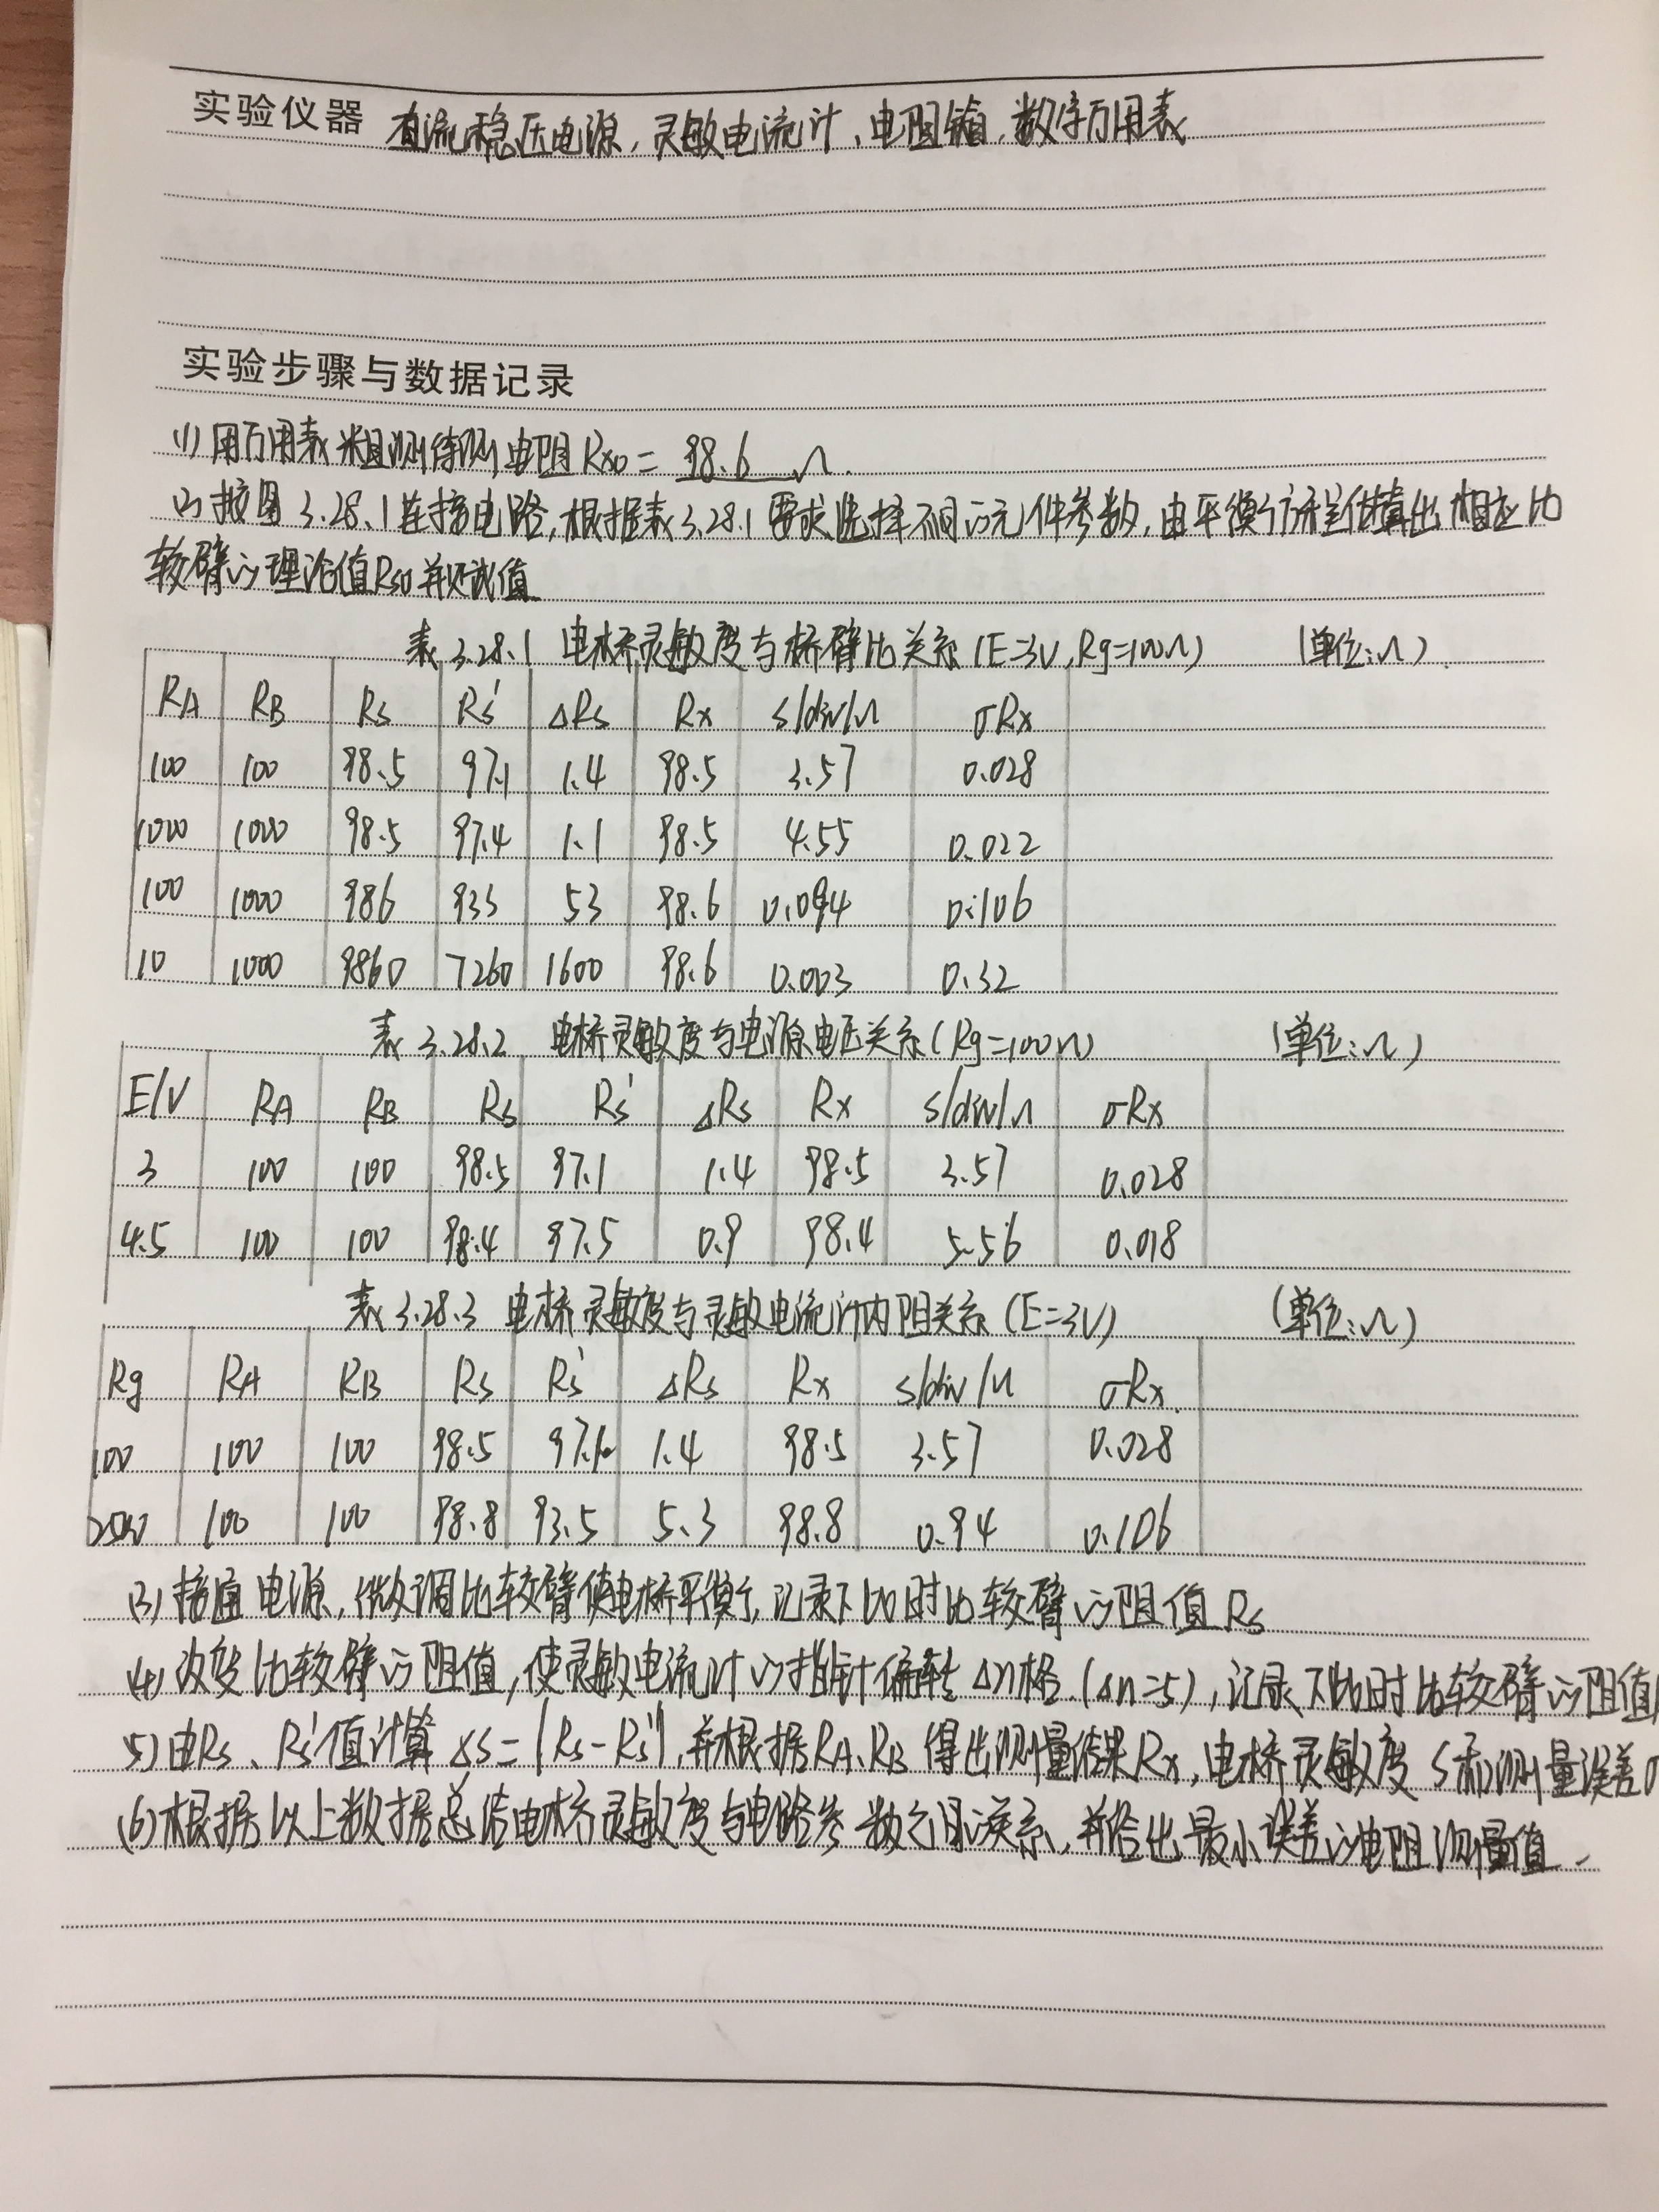 实验仪器 直流稳压电源,灵敏电流计、电阻箱,数字万用表
实验步骤与数据记录
(1) 用万用表粗测待测电阻Rx0= 98.6 Ω.
(2) 按图3.28.1连接电路,根据表3.28.1要求选择不同的元件参数,由平衡方程估算出相应比
较臂的理论值Rs0并以此
表3.28.1 电桥灵敏度与桥臂比关系(E=3V,Rg=100Ω) (单位:Ω).
RA RB Rs Rs' ΔRs Rx S/div/Ω σRx
100 100 98.5 97.1 1.4 98.5 3.57 0.028
1000 1000 98.5 97.4 1.1 98.5 4.55 0.022
100 1000 986 933 53 98.6 0.094 0.106
10 1000 9860 7260 1600 98.6 0.003 0.32
表3.28.2 电桥灵敏度与电源电压关系(Rg=100Ω) (单位:Ω)
E/V RA RB Rs Rs' ΔRs Rx S/div/Ω σRx
3 100 100 98.5 97.1 1.4 98.5 3.57 0.028
4.5 100 100 98.4 97.5 0.9 98.4 5.56 0.018
表3.28.3 电桥灵敏度与灵敏电流计内阻关系(E=3V) (单位:Ω)
Rg RA RB Rs Rs' ΔRs Rx S/div/Ω σRx
100 100 100 98.5 97.1 1.4 98.5 3.57 0.028
2500 100 100 98.8 93.5 5.3 98.8 0.94 0.106
(3) 接通电源,微调比较臂使电桥平衡,记录下此时比较臂的阻值Rs
(4) 改变比较臂的阻值,使灵敏电流计的指针偏转Δn格.(Δn=5),记录下此时比较臂的阻值
(5) 由Rs、Rs'值计算ΔS=|Rs-Rs'|,并根据RA、RB得出测量结果Rx,电桥灵敏度S和测量误差σ
(6) 根据以上数据总结电桥灵敏度与电路参数之间关系,并给出最小误差的电阻测量值